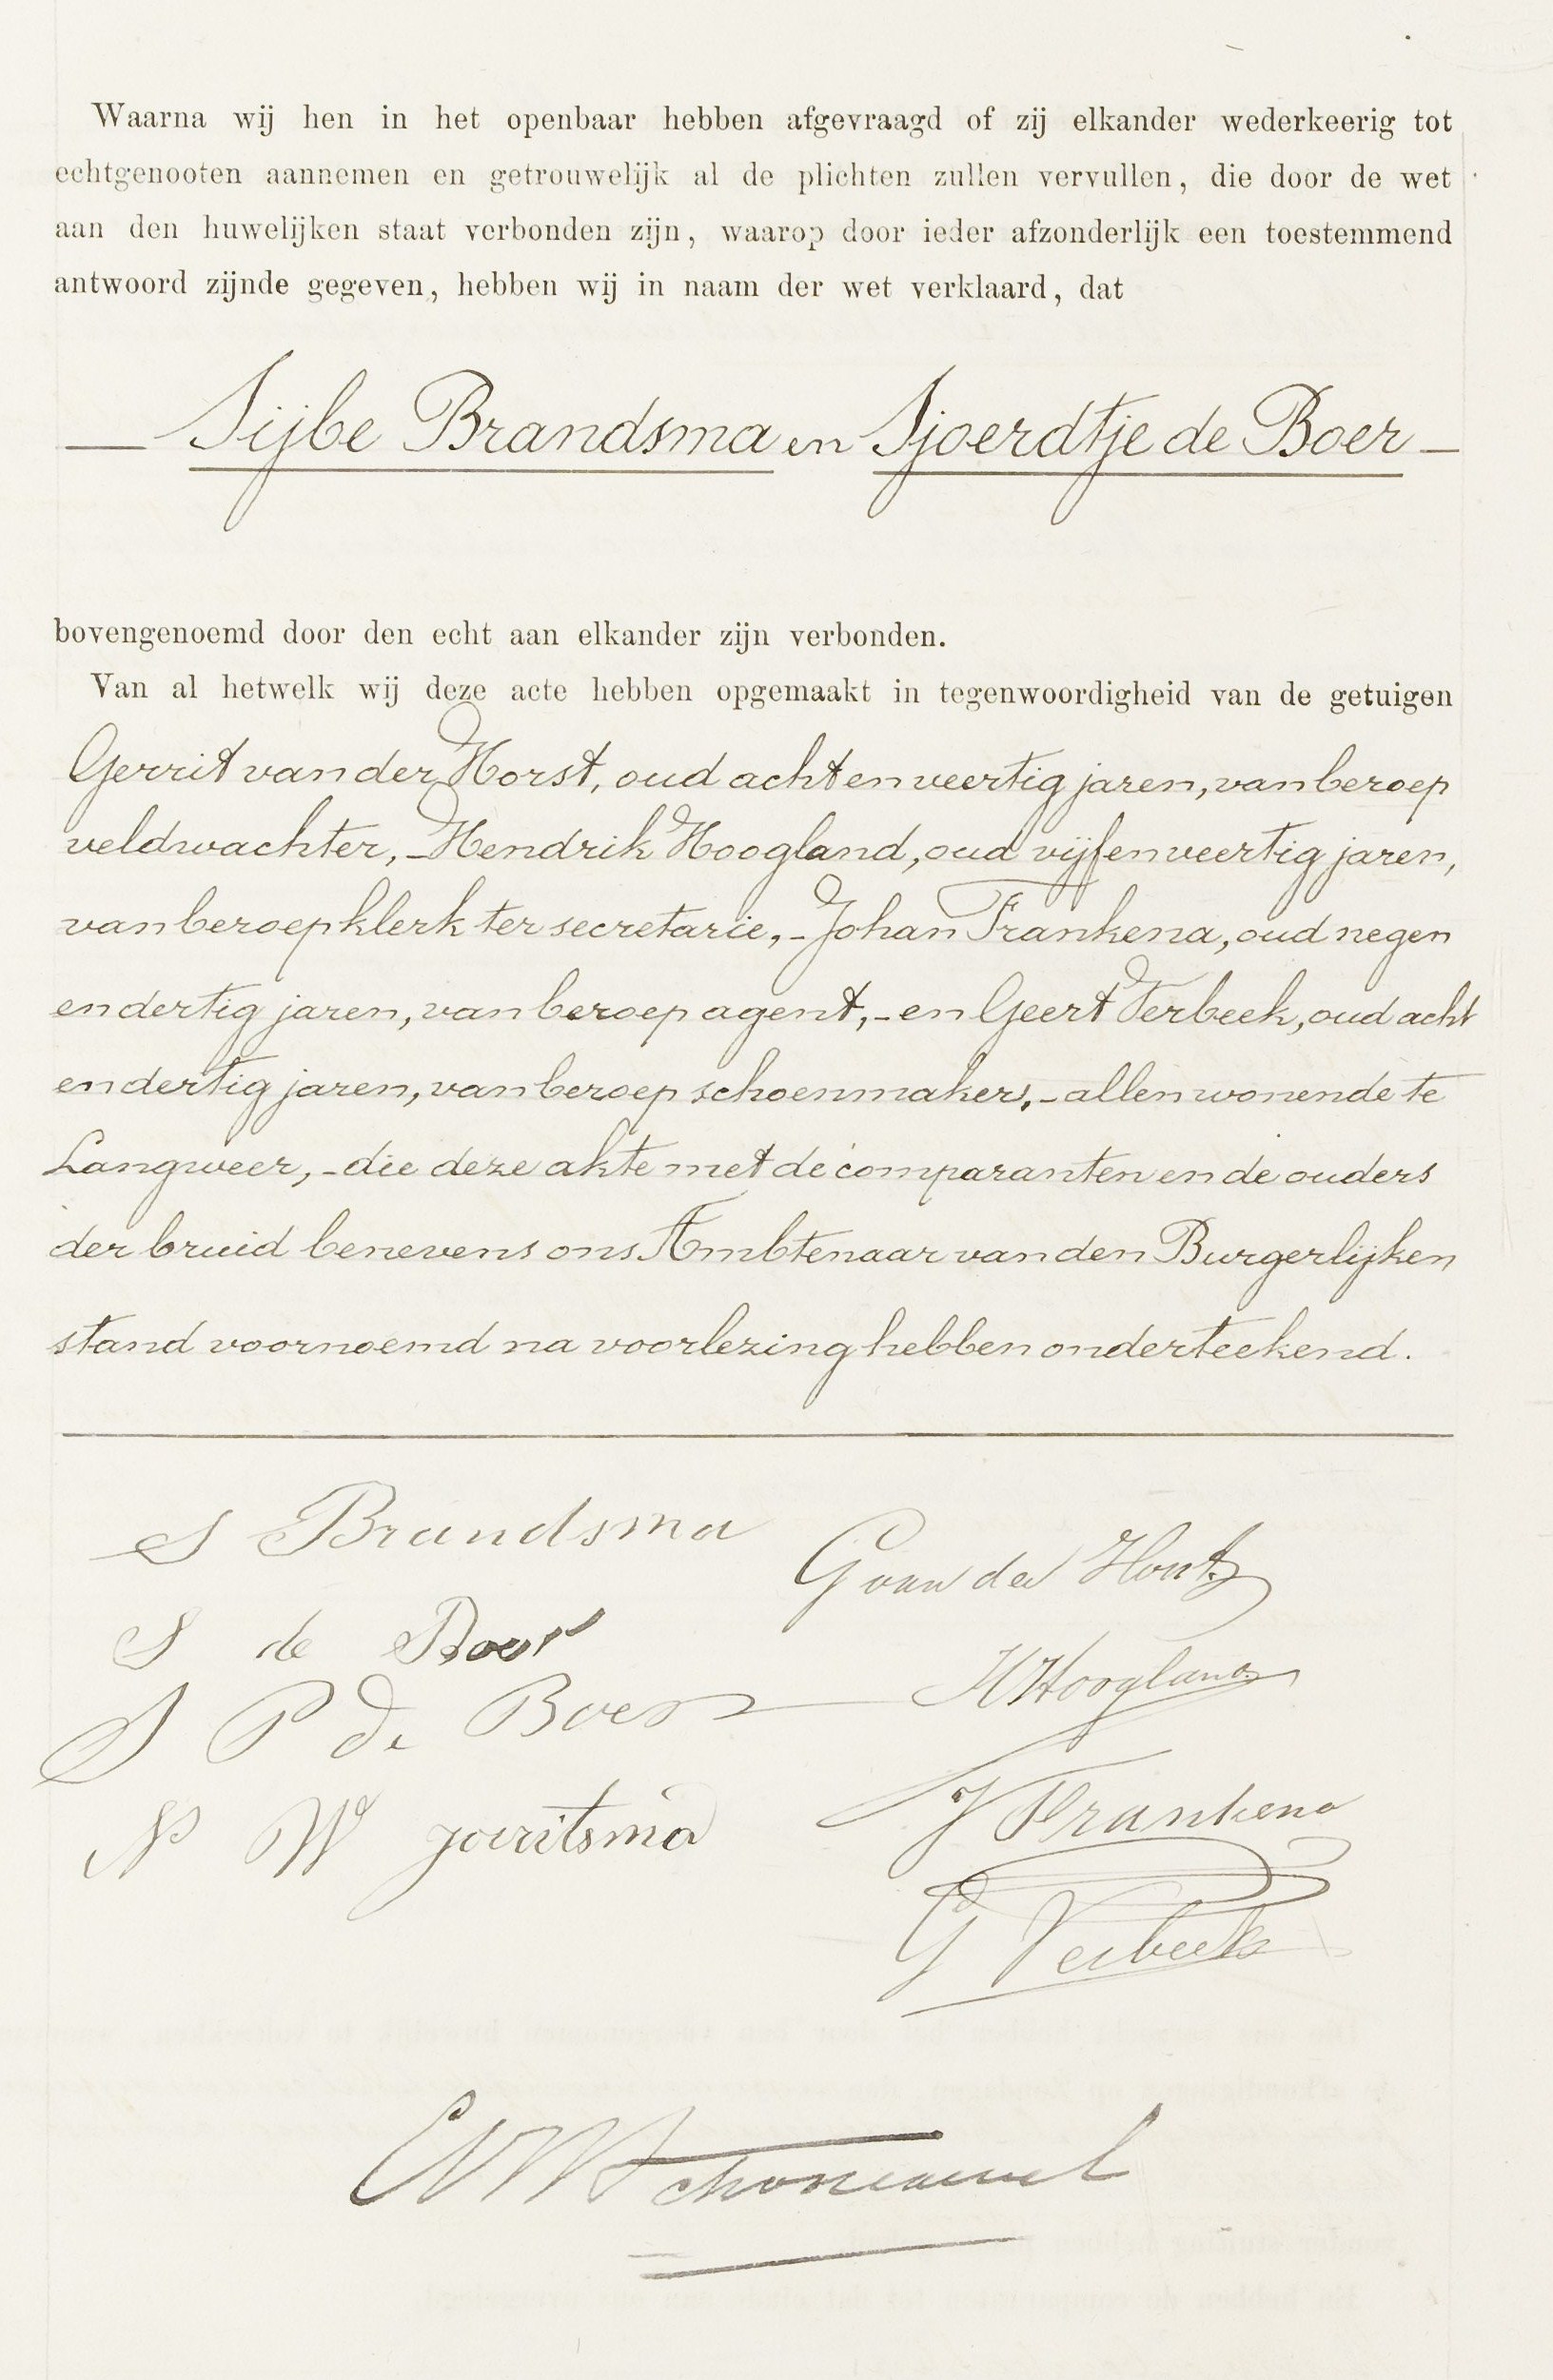 Waarna wij hen in het openbaar hebben afgevraagd of zij elkander wederkeerig tot
echtgenooten aannemen en getrouwelijk al de plichten zullen vervullen, die door de wet
aan den huwelijken staat verbonden zijn, waarop door ieder afzonderlijk een toestemmend
antwoord zijnde gegeven, hebben wij in naam der wet verklaard, dat
— Sijbe Brandsma en Sjoerdtje de Boer —
bovengenoemd door den echt aan elkander zijn verbonden.
Van al hetwelk wij deze acte hebben opgemaakt in tegenwoordigheid van de getuigen
Gerrit van der Horst, oud acht en veertig jaren, van beroep
veldwachter, - Hendrik Hoogland, oud vijf en veertig jaren,
van beroep klerk ter secretarie, - Johan Frankena, oud negen
en dertig jaren, van beroep agent, - en Geert Verbeek, oud acht
en dertig jaren, van beroep schoenmaker, - allen wonende te
Langweer, - die deze akte met de comparanten en de ouders
der bruid benevens ons Ambtenaar van den Burgerlijken
stand voornoemd na voorlezing hebben onderteekend.
S Brandsma
G van der Horst
S de Boer
H Hoogland
S P de Boer
J Frankena
N W Goeritsma
G Verbeek